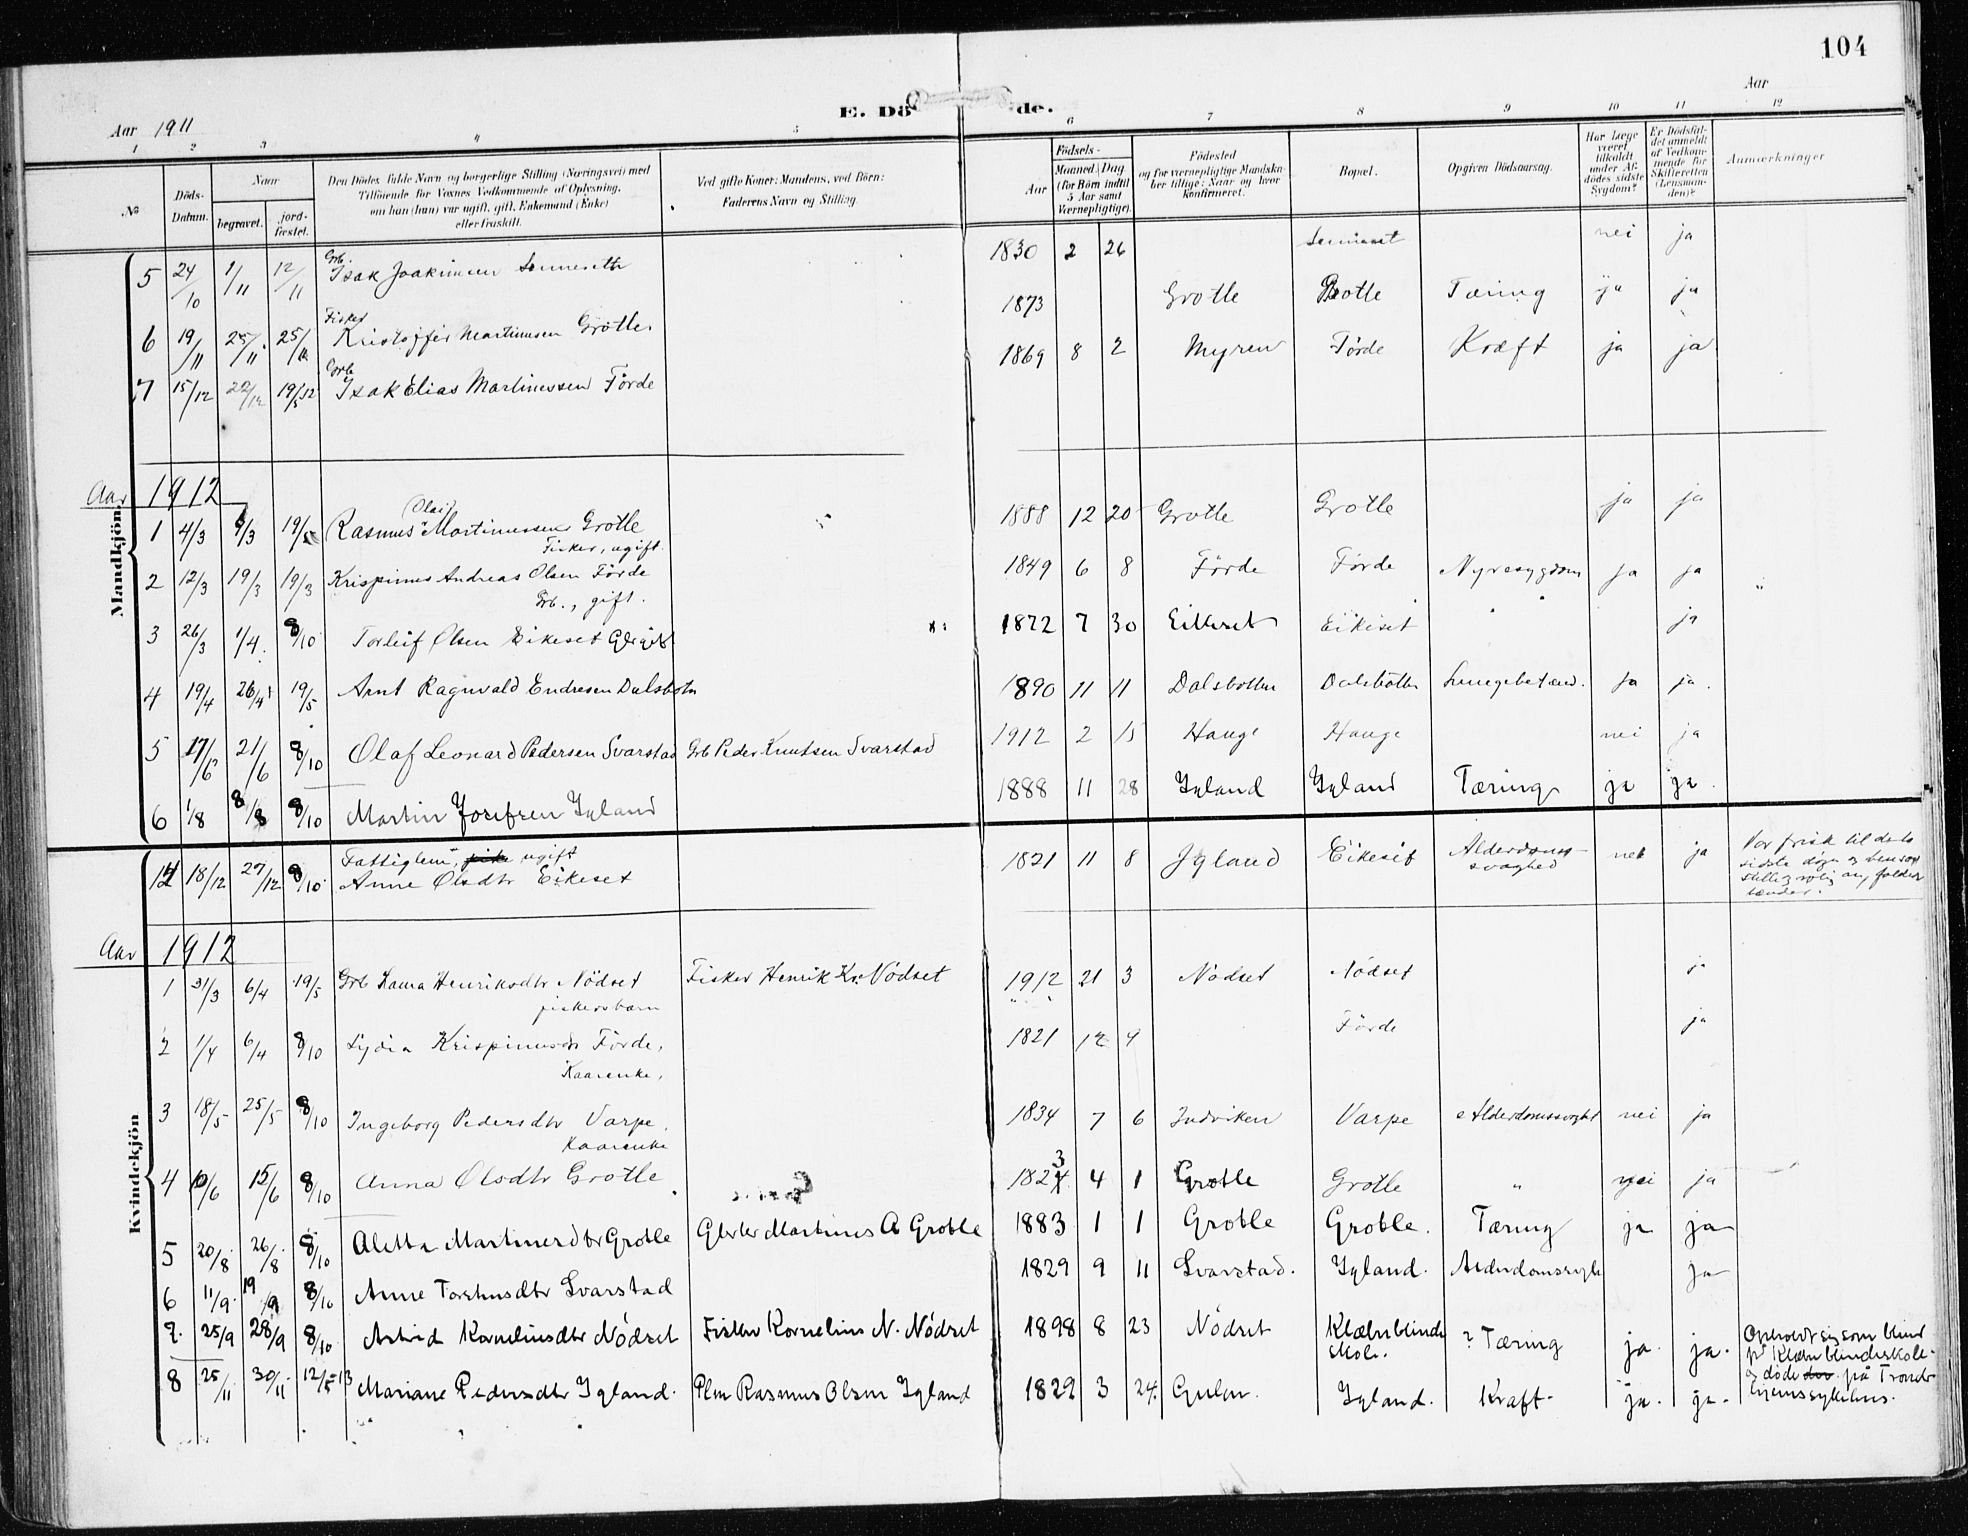 104
E. Dö de.
Aar 1911
Aar
1 2 3 4 5 6 7 8 9 10 11 12
№
Döds-Datum.
Naar
begravet.
jord-fæstet.
Den Dödes fulde Navn og borgerlige Stilling (Næringsvei) med
Tilföiende for Voxnes Vedkommende af Oplysning,
om han (hun) var ugift, gift, Enkemand (Enke)
eller fraskilt.
Ved gifte Koner: Mandens, ved Börn:
Faderens Navn og Stilling.
Födsels-
Aar
Maaned. Dag
(for Börn indtil
5 Aar samt
Værnepligtige).
Födested
og for værnepligtige Mandskaber tillige: Naar og hvor
konfirmeret.
Bopæl.
Opgiven Dödsaarsag.
Har Læge
været
tilkaldt
under Afdödes sidste
Sygdom?
Er Dödsfaldet anmeldt
af Vedkommende for
Skifteretten
(Lensmanden)?
Anmærkninger
Mandkjön.
5 24/10 1/11 12/11 Grb. Isak Joakimsen Sennesetr 1830 2 26 Senneset nei ja
6 19/11 25/11 25/11 Fisker Kristoffer Martinusen Grotle 1873 Grotle Grotle Tæring ja ja
7 15/12 22/12 19/5 12 Grb Isak Elias Martinussen Förde 1869 8 2 Myren Förde Kræft ja ja
Aar 1912
1 4/3 9/3 19/5 Rasmus (Olai) Martinussen Grotle 1888 12 20 Grotle Grotle ja ja
Fisker, ugift.
2 12/3 19/3 19/3 Krispinus Andreas Olsen Förde 1849 6 8 Förde Förde Nyresygdom ja ja "
Grb., gift.
3 26/3 1/4. 8/10 Torleif Olsen Eikeset 1872 7 30 Eikeset Eikeset " " ja
4 19/4 26/4 19/5 Arnt Ragnvald Endresen Dalsbotn 1890 11 11 Dalsbotten Dalsbotten Lungebetænd. ja ja.
5 17/6 21/6 8/10 Olaf Leonard Pedersen Svarstad Grb Peder Knutsen Svarstad 1912 2 15 Hauge Hauge nei ja
6 1/8 8/8 8/10 Martin Josefsen Igland 1888 11 28 Igland Igland Tæring ja ja.
Kvindekjön
12 18/12 27/12 8/10 Fattiglem, ugift 1821 11 8 Igland Eikeset Alderdoms-svaghed nei ja Var frisk til dets
Anne Olsdtr Eikeset
sidste døgn
Aar 1912
1 31/3 6/4 19/5 Grb Laura Henriksdtr Nödset Fisker Henrik Kr. Nödset 1912 21 3 Nödset Nödset ja
fiskersbarn
2 1/4 6/4 8/10 Lydia Krispinusdtr Förde, 1821 12 9 Förde ja
Kaarenke,
3 18/5 25/5 8/10 Ingeborg Pedersdtr Varpe, 1834 7 6 Indviken Varpe Alderdomssvaght nei ja
Kaarenke
4 10/6 15/6 8/10 Anna Olsdtr Grotle 1823 4 1 Grotle Grotle " nei ja
5 20/8 26/8 8/10 Aletta Martinesdtr Grotle Martines A Grotle 1883 1 1 Grotle Grotle. Tæring ja ja
6 11/9 19/9 8/10 Anne Svarstad 1829 9 11 Svarstad. Igland. Alderdomssvgh ja
7. 25/9 28/9 8/10 Astrid Korneliusdtr Nödset Fisker Kornelius N. Nödset 1898 8 23 Nödset Klæbu blinde skole. ? Tæring ja. ja. Opholdt sig som blind
på Klæbu blindeskole
og døde på Trond-
hjems sykehus.
8 25/11 30/11 12/5-13 Mariane Pedersdtr Igland. Plm Rasmus Olsen Igland 1829 3 24. Gulen. Igland. Kraft. ja. ja.